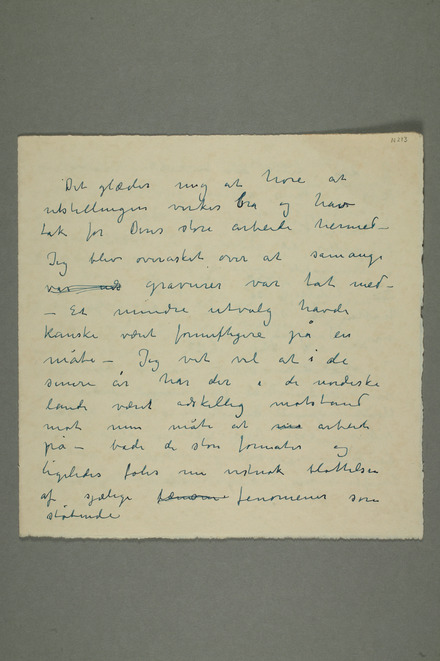 N 243
Det glæder mig at høre at
utstillingen virker bra og hav
tak for Deres store arbeide hermed –
Jeg blev overasket over at samange
gravurer var tat med –
– Et mindre utvalg havde
kanske været fornuftigere på en
måte – Jeg vet vel at i de
senere år har der i de nordiske
lande været adskillig motstand
mot min måte at arbeide
på – både de store formater og
ligeledes føles nu vistnok blottelsen
af sjælige fenomener som
støtende